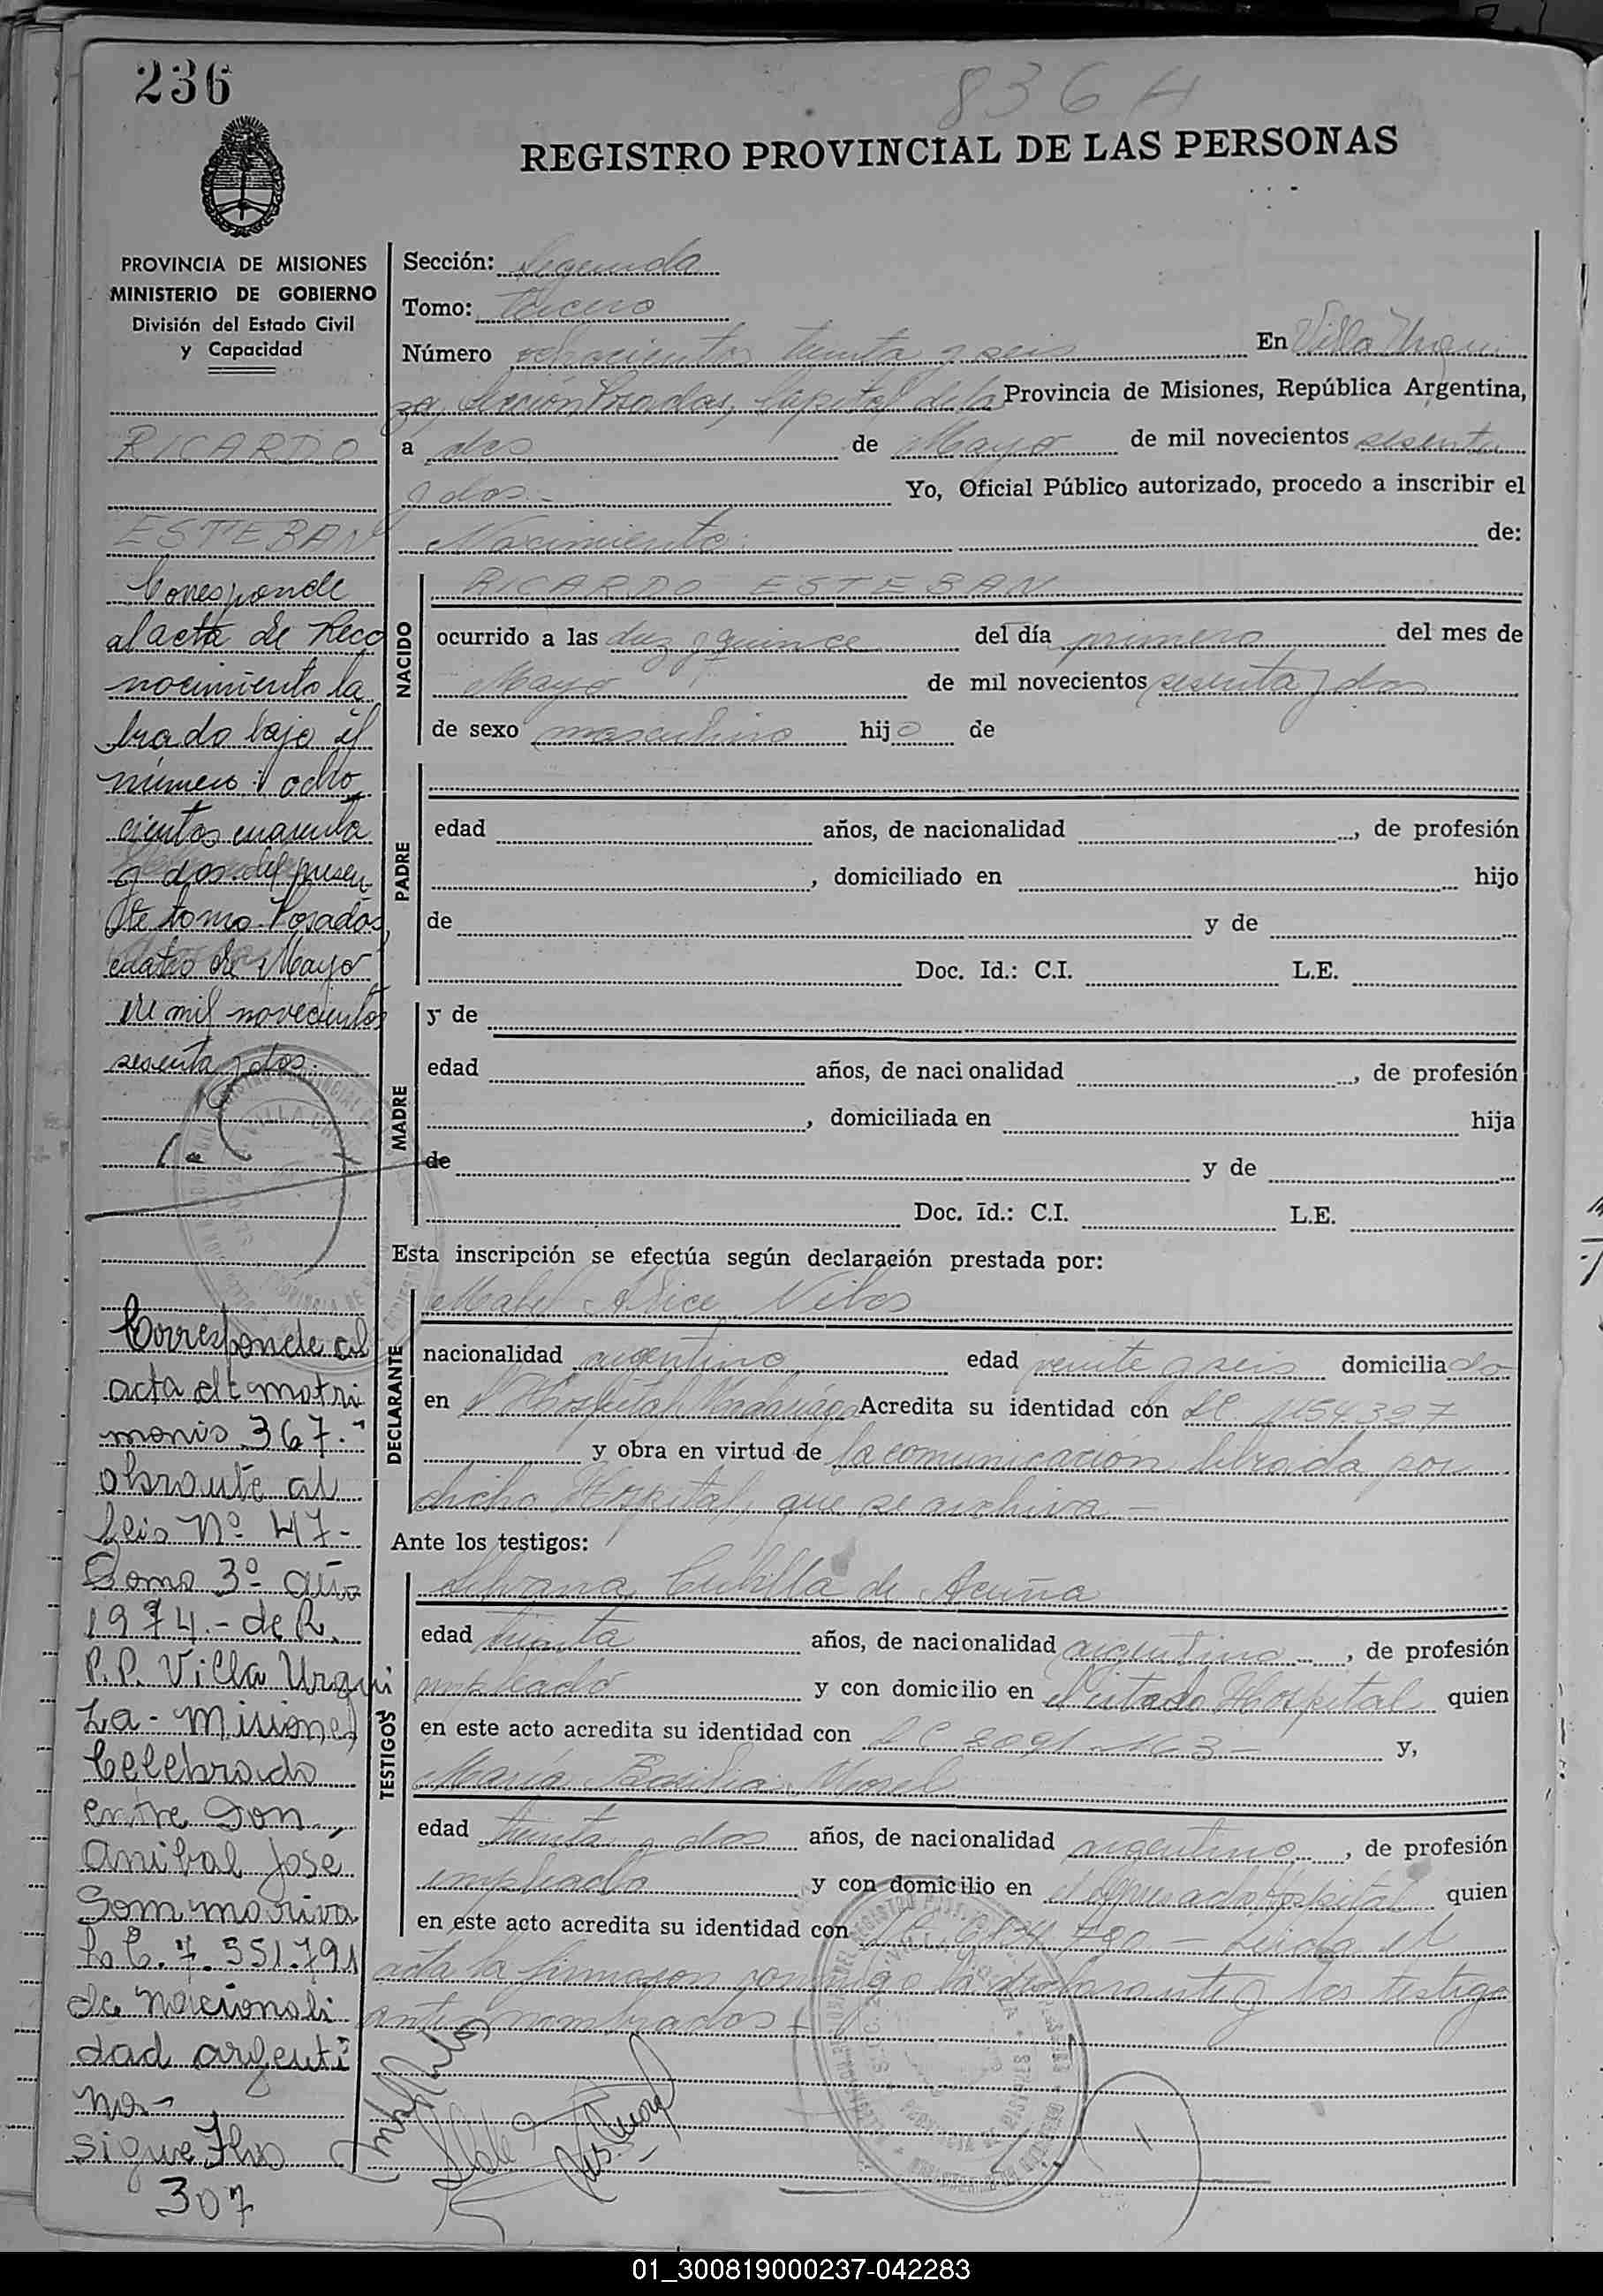 236
836 H
REGISTRO PROVINCIAL DE LAS PERSONAS
PROVINCIA DE MISIONES
MINISTERIO DE GOBIERNO
División del Estado Civil
y Capacidad
RICARDO
ESTEBAN
Corresponde
al acta de Reco
nocimiento la
brado bajo el
número: ocho
cientos cuarenta
y dos del presen
te tomo. Posadas,
cuatro de Mayo
de mil novecientos
sesenta y dos.
Corresponde al
acta de matri
monio 367.-
obrante al
folio Nº 47-
Tomo 3º año
1974.- de R.
P.P. Villa Urqui
za - Misiones
Celebrado
entre Don,
Anibal Jose
Sommariva
L.E. 7.551.791
de nacionali
dad argenti
na-
sigue Fho
307
Sección: Segunda
Tomo: tercero
Número ochocientos treinta y seis En Villa Urqui
za, Sección Posadas, Capital de la Provincia de Misiones, República Argentina,
a dos de Mayo de mil novecientos sesenta
y dos.- Yo, Oficial Público autorizado, procedo a inscribir el
Nacimiento de:
NACIDO
RICARDO ESTEBAN
ocurrido a las diez y quince del día primero del mes de
Mayo de mil novecientos sesenta y dos
de sexo masculino hijo de
PADRE
edad años, de nacionalidad , de profesión
, domiciliado en hijo
de y de
Doc. Id.: C.I. L.E.
MADRE
y de
edad años, de naci onalidad , de profesión
, domiciliada en hija
de y de
Doc. Id.: C.I. L.E.
Esta inscripción se efectúa según declaración prestada por:
DECLARANTE
Mabel Alice
nacionalidad argentina edad veinte y seis domiciliado
en el Hospital Madariaga Acredita su identidad con LC. 1154327
y obra en virtud de la comunicación librada por
dicho Hospital, que se archiva -
Ante los testigos:
TESTIGOS
Silvana Cubilla de Acuña
edad treinta años, de nacionalidad argentina , de profesión
empleada y con domicilio en el citado Hospital quien
en este acto acredita su identidad con LC 2091.163- y,
María Basilia Morel
edad treinta y dos años, de nacionalidad argentina , de profesión
empleada y con domicilio en el expresado Hospital quien
en este acto acredita su identidad con - Leída el
acta la firmaron conmigo la declarante y los testigo
antes nombrados
01_300819000237-042283